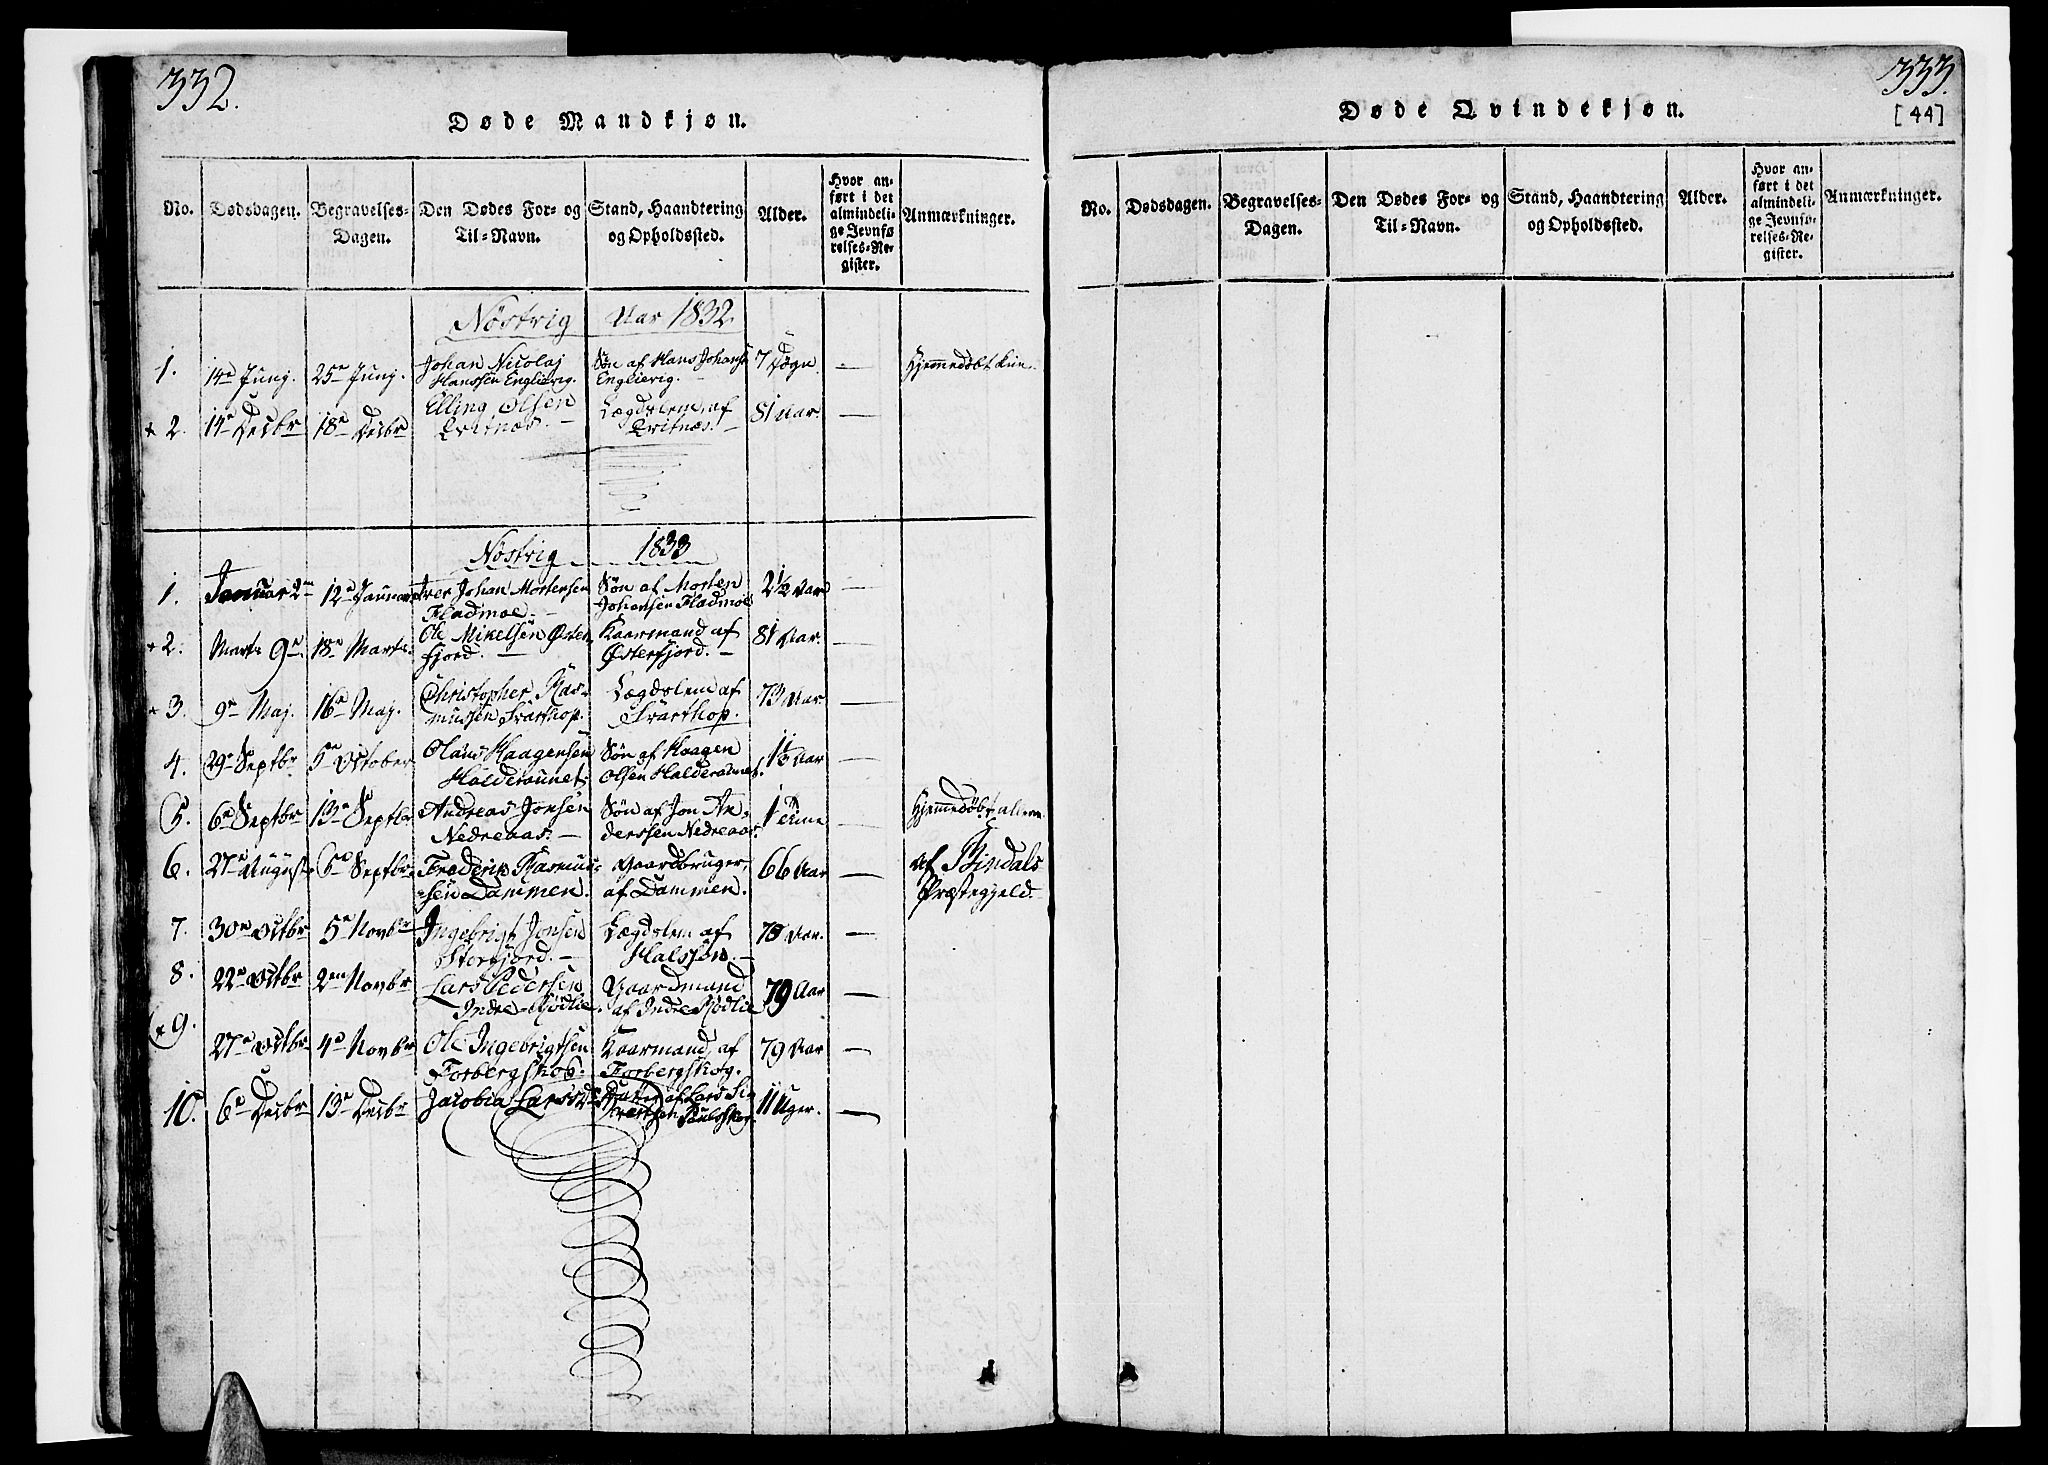 332.
Døde Mandkjøn.
No. Dødsdagen. Begravelses-Dagen. Den Dødes For- og Til-Navn. Stand, Haandtering og Opholdssted. Alder. Hvor anført i det almindelige Jevnførelses-Register. Anmærkninger.
Nöstrig Aar 1832
1. 14de Junj. 25de Junj. Johan Nicolaj Søn af Hans Johans 7 Døgn — Hjemmedöbt
Hanssen Englierig. Englierig.
* 2. 14de Decbr 18de Decbr Elling Olsen Lægdslem af 81 Aar. —
Kvitnæs. — Kvitnæs. —
Nöstrig 1833
1. Januar 2den 12te Januar Iver Johan Mortensen Søn af Morten 2½ Aar —
Fladmoe. — Johansen Fladmoe
* 2. Marts 9de 18de Marts. Ole Mikelsen Øster Kaarmand af 81 Aar. —
fjord. — Østerfjord. —
* 3. 9de Maj. 16de Maj. Christopher Ras- Lægdslem af 73 Aar —
mussen Svarthop. Svarthop.
4. 29de Septbr 5te October Olaus Haagensen Søn af Haagen 1⅓ Aar —
Halderaunet Olsen Halderaunet.
5. 6te Septbr 13de Septbr Andreas Jonsen Søn af Jon An- 1 Time — Hjemmedöbt allene
Nedreaas. — derssen Nedreaas.
6. 27de August 5te Septbr Frederik Rasmus- Gaardbruger, 66 Aar — af Bindals
sen Dammen. af Dammen. Præstegjeld.
7. 30te Octbr 5te Novbr Ingebrigt Jonsen Lægdslem af Aar. —
Storfjord. — —
8. 22de Octbr 2den Novbr Lars Pedersen Gaardmand 79 Aar —
Indre Kjödlie. af Indre Kjödlie
* 9. 27de Octbr 4de Novbr Ole Ingebrigtsen Kaarmand, af 79 Aar —
Forbergskog. Forbergskog.
10. 6te Decbr 13de Decbr Jacobia Larsdr. Datter af Lars 11 Uger. —
333.
[44]
Døde Qvindekjøn.
No. Dødsdagen. Begravelses-Dagen. Den Dødes For- og Til-Navn. Stand, Haandtering og Opholdssted. Alder. Hvor anført i det almindelige Jevnførelses-Register. Anmærkninger.